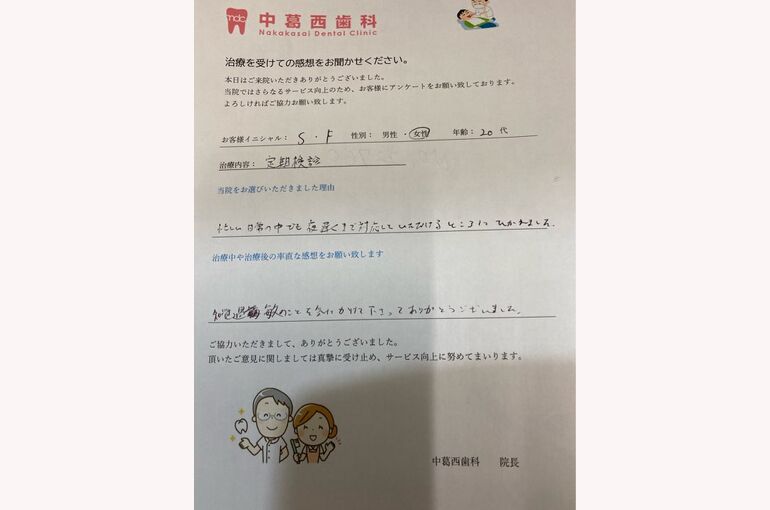 mdc 中葛西歯科
Nakakasai Dental Clinic
治療を受けての感想をお聞かせください。
本日はご来院いただきありがとうございました。
当院ではさらなるサービス向上のため、お客様にアンケートをお願い致しております。
よろしければご協力お願い致します。
お客様イニシャル： S ・ F 性別： 男性 ・ 女性 年齢： 20 代
治療内容： 定期検診
当院をお選びいただきました理由
忙しい日常の中でも夜遅くまで対応していただけるところにひかれました。
治療中や治療後の率直な感想をお願い致します
知覚過敏のことを気にかけて下さってありがとうございました。
ご協力いただきまして、ありがとうございました。
頂いたご意見に関しましては真摯に受け止め、サービス向上に努めてまいります。
中葛西歯科 院長